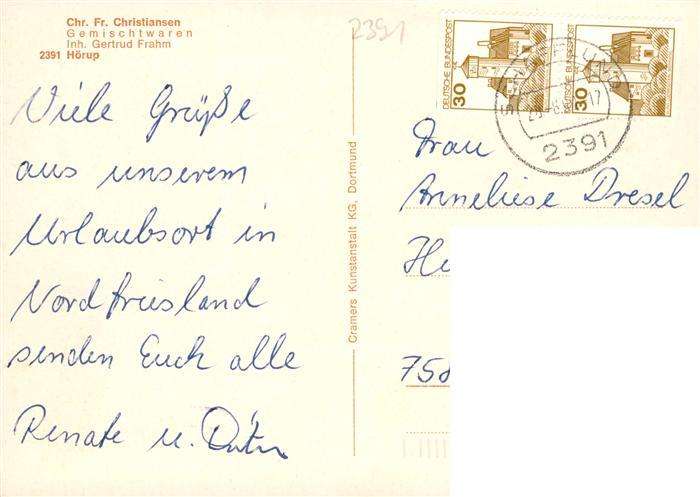 Chr. Fr. Christiansen
Gemischtwaren
Inh. Gertrud Frahm
2391 Hörup
2391
Viele Grüße
aus unserem
Urlaubsort in
Nordfriesland
senden Euch alle
Renate u.
Cramers Kunstanstalt KG, Dortmund
DEUTSCHE BUNDESPOST
30
DEUTSCHE BUNDESPOST
30
17
2391
Frau
Anneliese Dresel
758